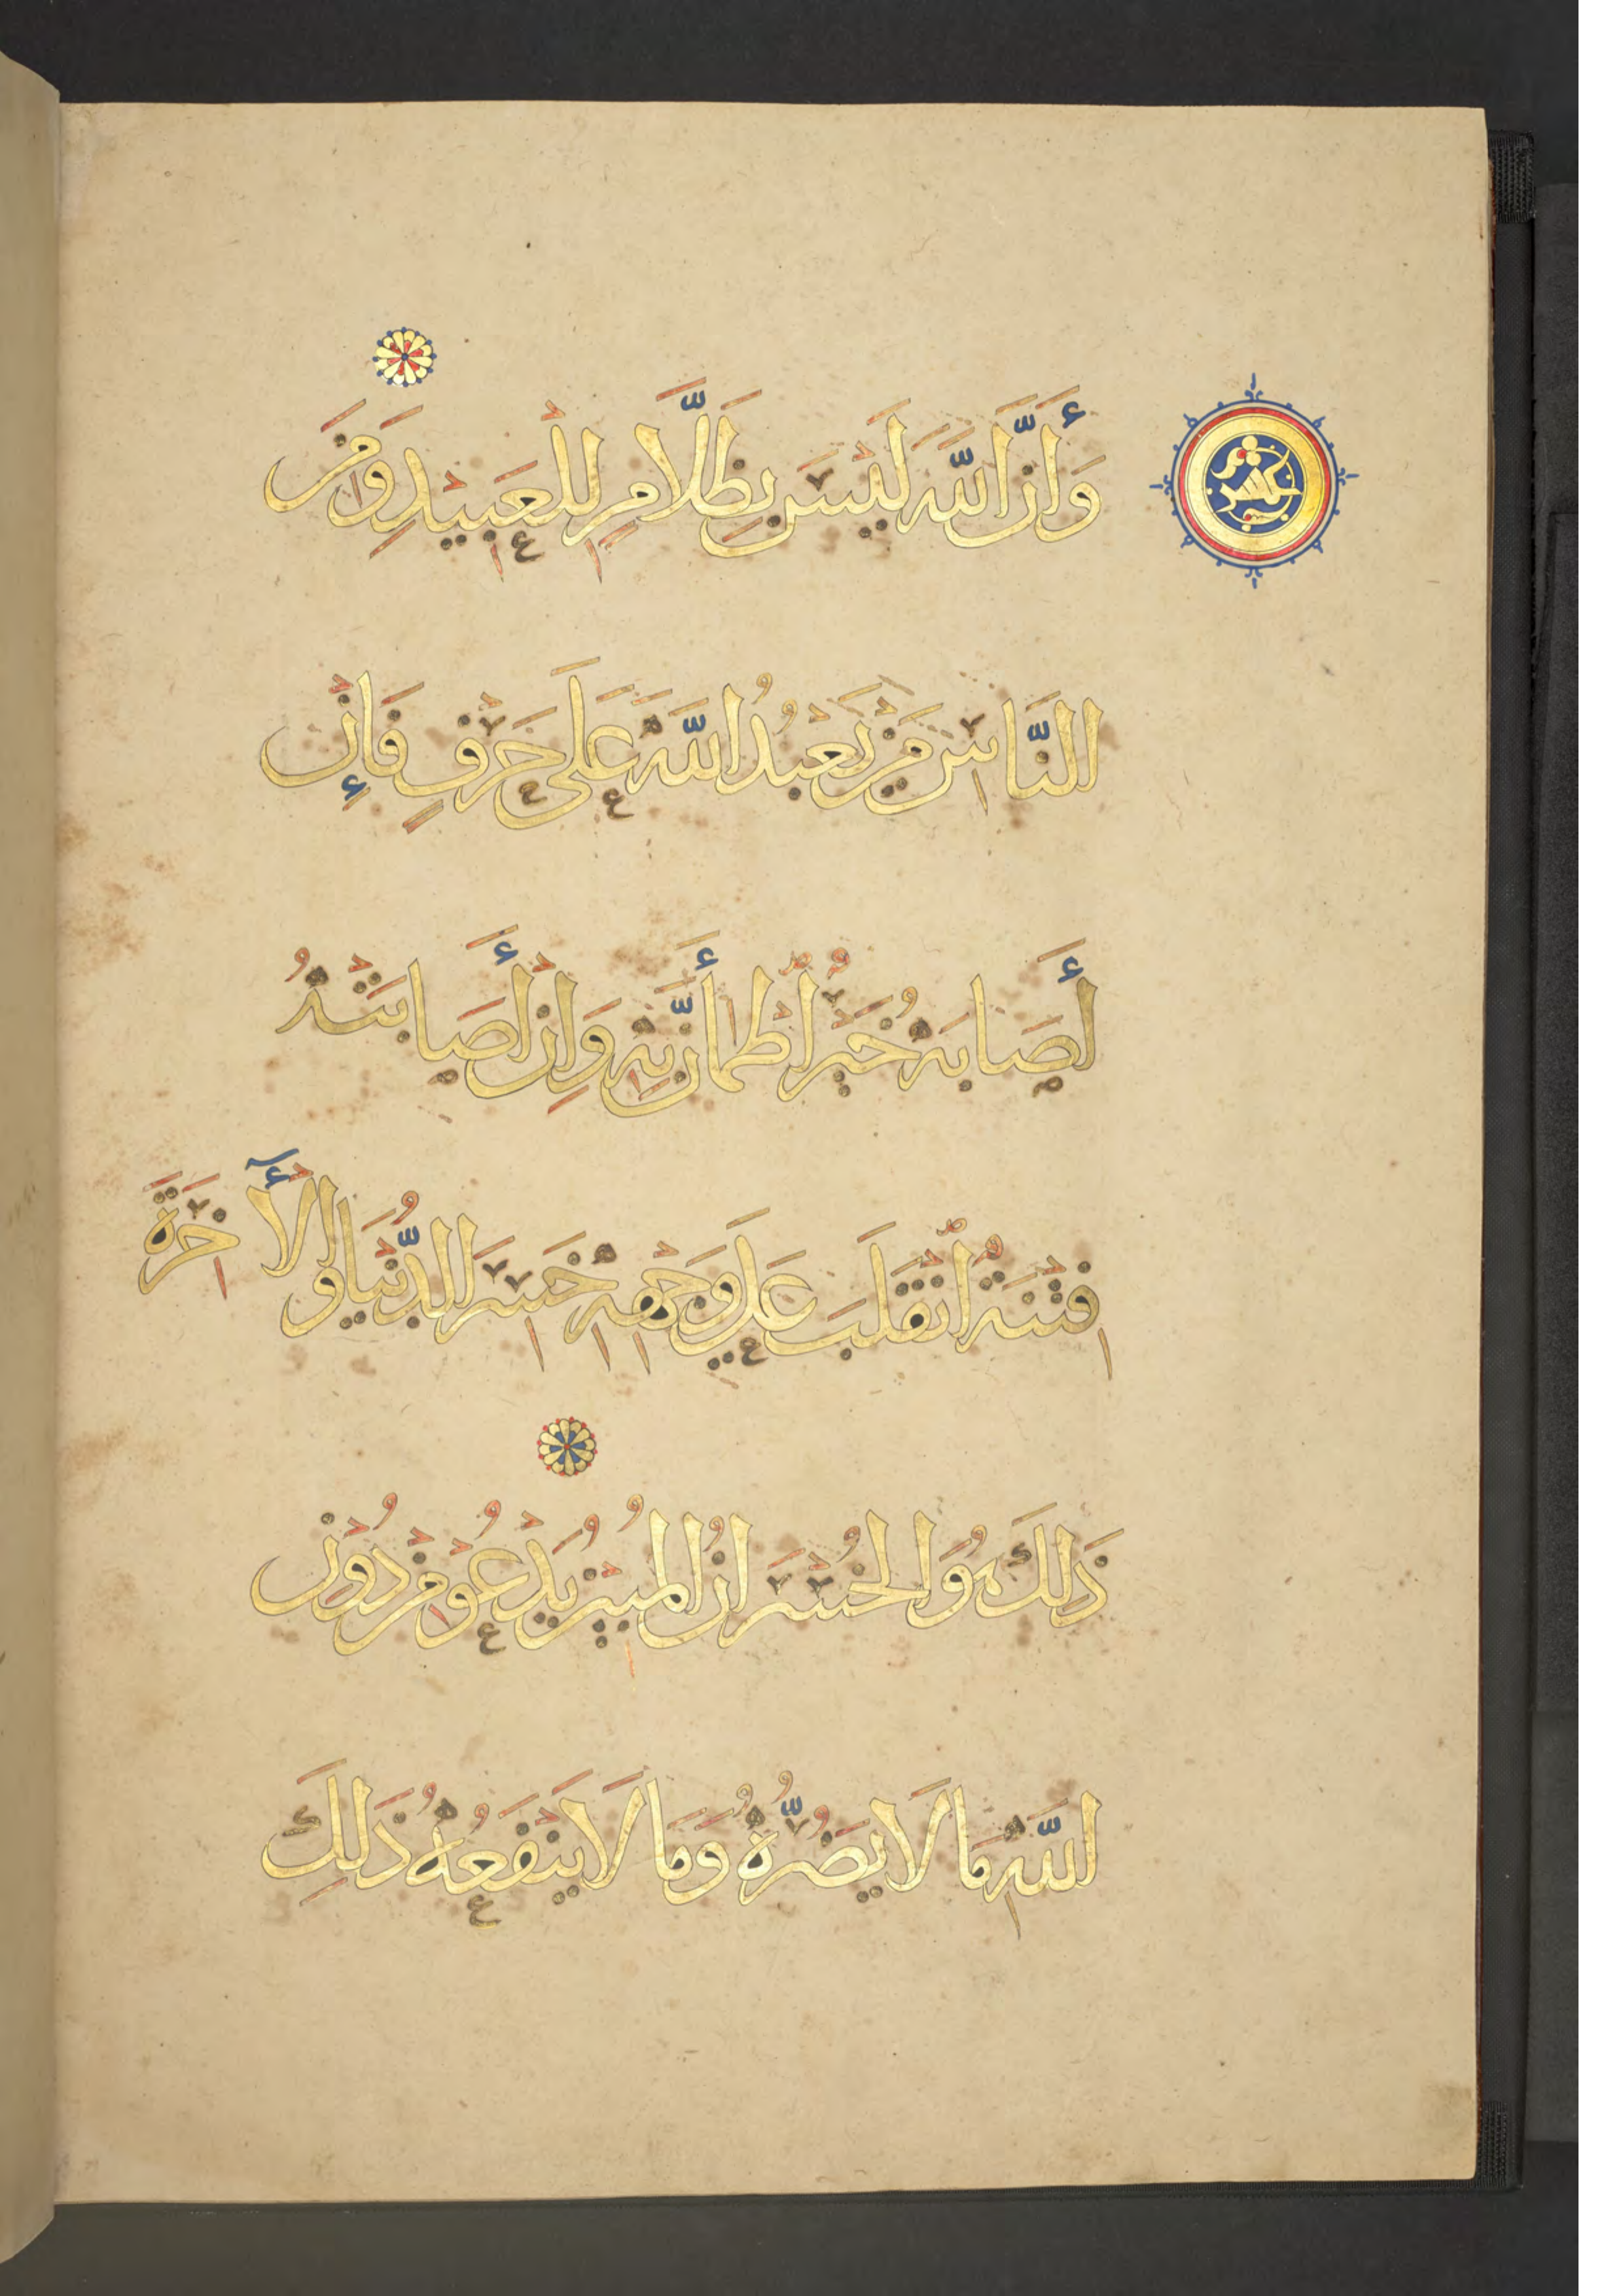 وَأَنَّ اللَّهَ لَيْسَ بِظَلَّامٍ لِلْعَبِيدِ وَمِنَ
النَّاسِ مَنْ يَعْبُدُ اللَّهَ عَلَى حَرْفٍ فَإِنْ
أَصَابَهُ خَيْرٌ اطْمَأَنَّ بِهِ وَإِنْ أَصَابَتْهُ
فِتْنَةٌ انْقَلَبَ عَلَى وَجْهِهِ خَسِرَ الدُّنْيَا وَالْآخِرَةَ
ذَلِكَ هُوَ الْخُسْرَانُ الْمُبِينُ يَدْعُو مِنْ دُونِ
اللَّهِ مَا لَا يَضُرُّهُ وَمَا لَا يَنْفَعُهُ ذَلِكَ